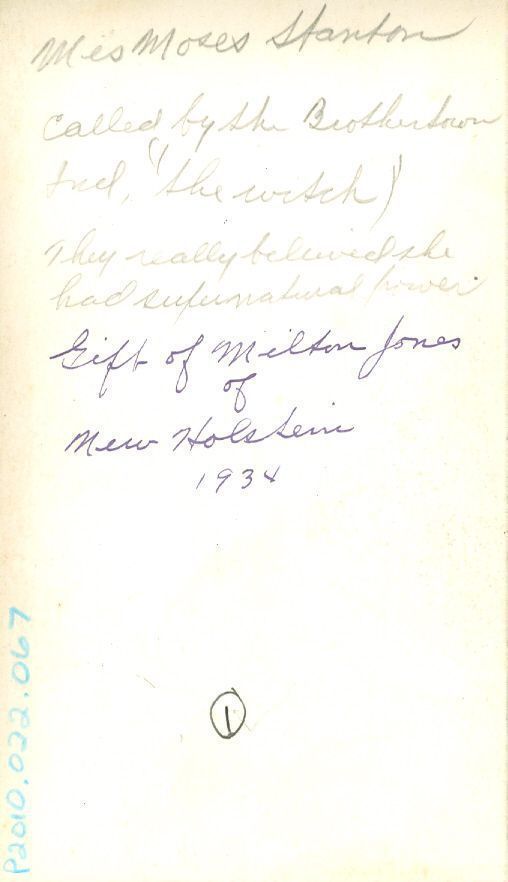 Mrs Moses Stanton
called by the Brothertown
Ind, "the witch)
They really believed she
had supernatural power
Gift of Milton Jones
of
New Holstein
1934
1
P2010.022.067